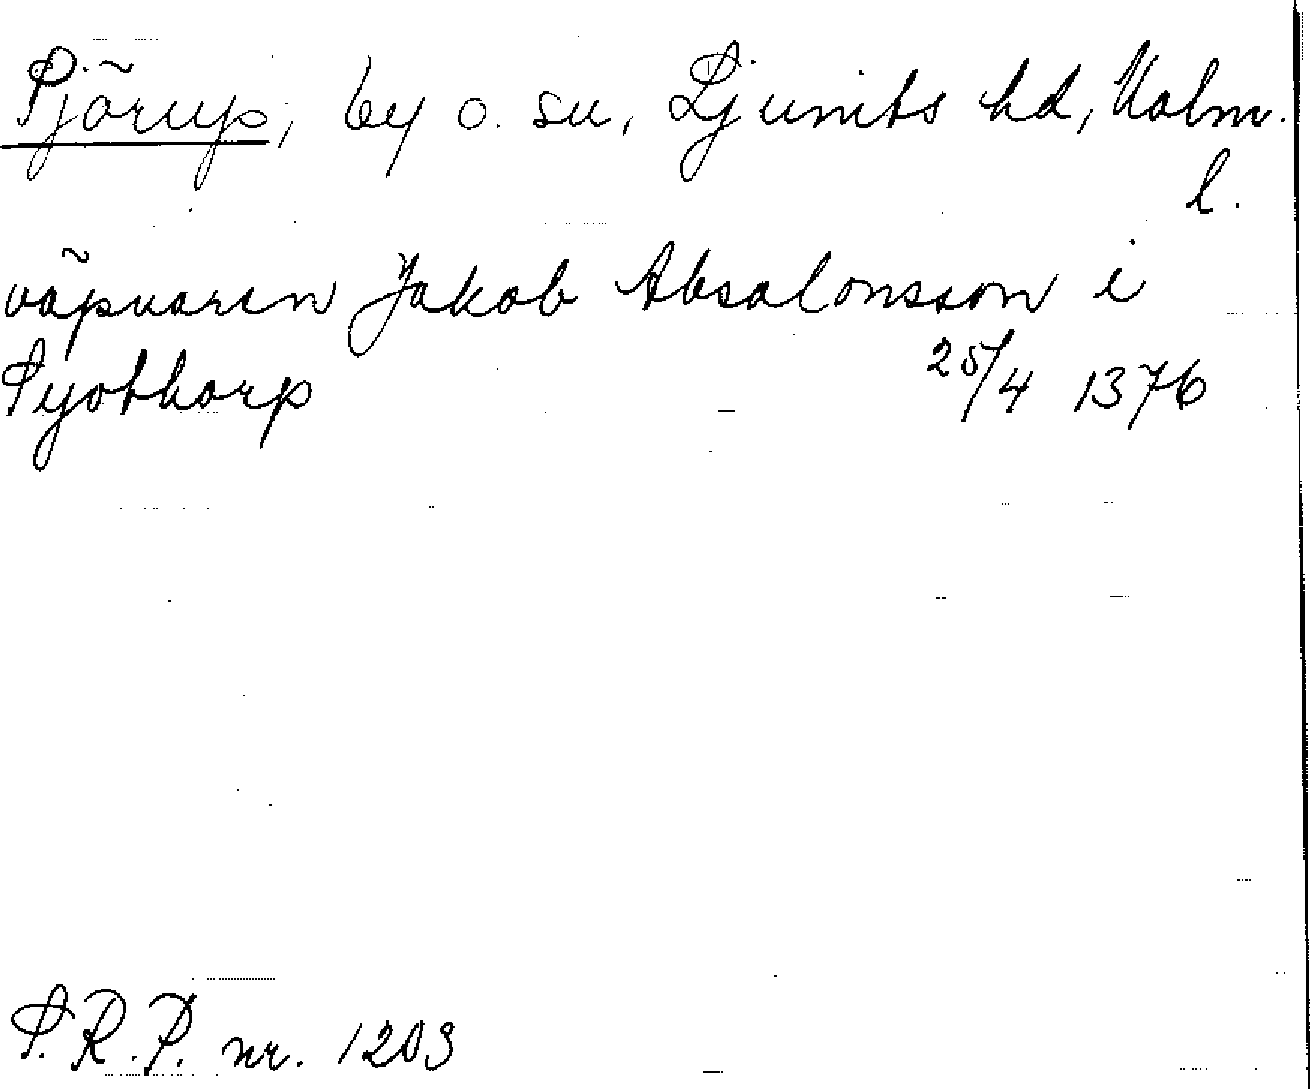 Sjörup, by o. sn, Ljunits hd, Malm.
l.
väpnaren Jakob Absalonsson i
Syothorp 25/4 1376
S.R.P. nr. 1203